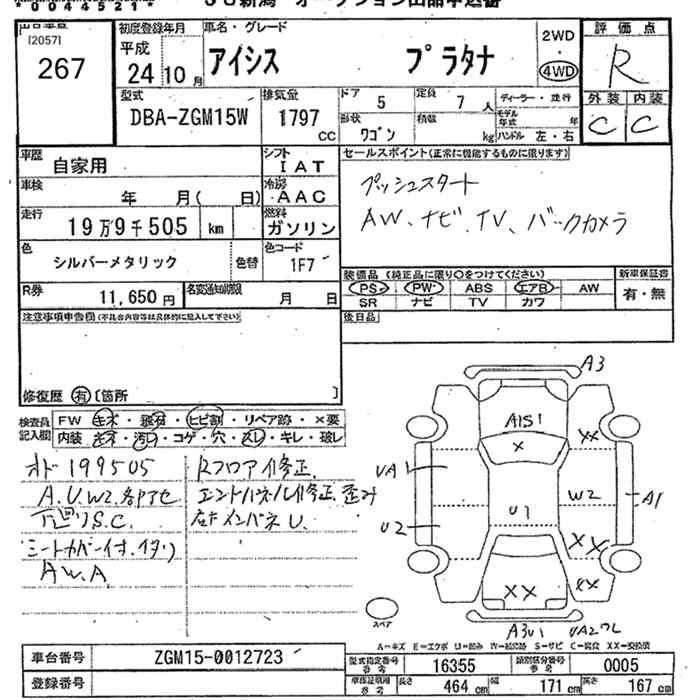 *0044521*
JU新潟 オークション出品申込書
出品番号
[2057]
267
初度登録年月
平成
24 10 月
車名・グレード
アイシス プラタナ
2WD
・
4WD
評価点
R
外装 内装
C C
型式
DBA-ZGM15W
排気量
1797
cc
ドア 5
定員 7 人
形状 ワゴン
積載 kg
ディーラー・並行
モデル年式 年
ハンドル 左・右
車歴 自家用
シフト IAT
車検 年 月( 日)
冷房 AAC
走行 19万9千505 km
燃料 ガソリン
色 シルバーメタリック
色替
色コード 1F7
R券 11,650 円
名変通知期限 月 日
セールスポイント(正常に機能するものに限ります)
プッシュスタート
AW、ナビ、TV、バックカメラ
装備品(純正品に限り○をつけてください)
新車保証書
PS PW ABS エアB AW
SR ナビ TV カワ
有・無
後日品
注意事項申告欄(不具合内容等は具体的に記入して下さい)
修復歴 有 [箇所 ]
検査員記入欄
FW キズ・飛石・ヒビ割・リペア跡・×要
内装 キズ・汚れ・コゲ・穴・スレ・キレ・破レ
オド199505
A.U.W2.各部アセ
下廻りS.C.
シートカバー付.イタリ
AW.A
Rフロア修正.
エンドパネル修正.歪み
右F インパネU.
A3
A1S1
X
XX
UA1
W2
A1
U1
U2
XX
XX
XX
A3U1
UA2
スペア
A=キズ E=エクボ U=凹み W=補修跡 S=サビ C=腐食 XX=交換済
車台番号 ZGM15-0012723
登録番号
型式指定番号 参考 16355
類別区分番号 参考 0005
車体証明用 参考
長さ 464 cm
幅 171 cm
高さ 167 cm